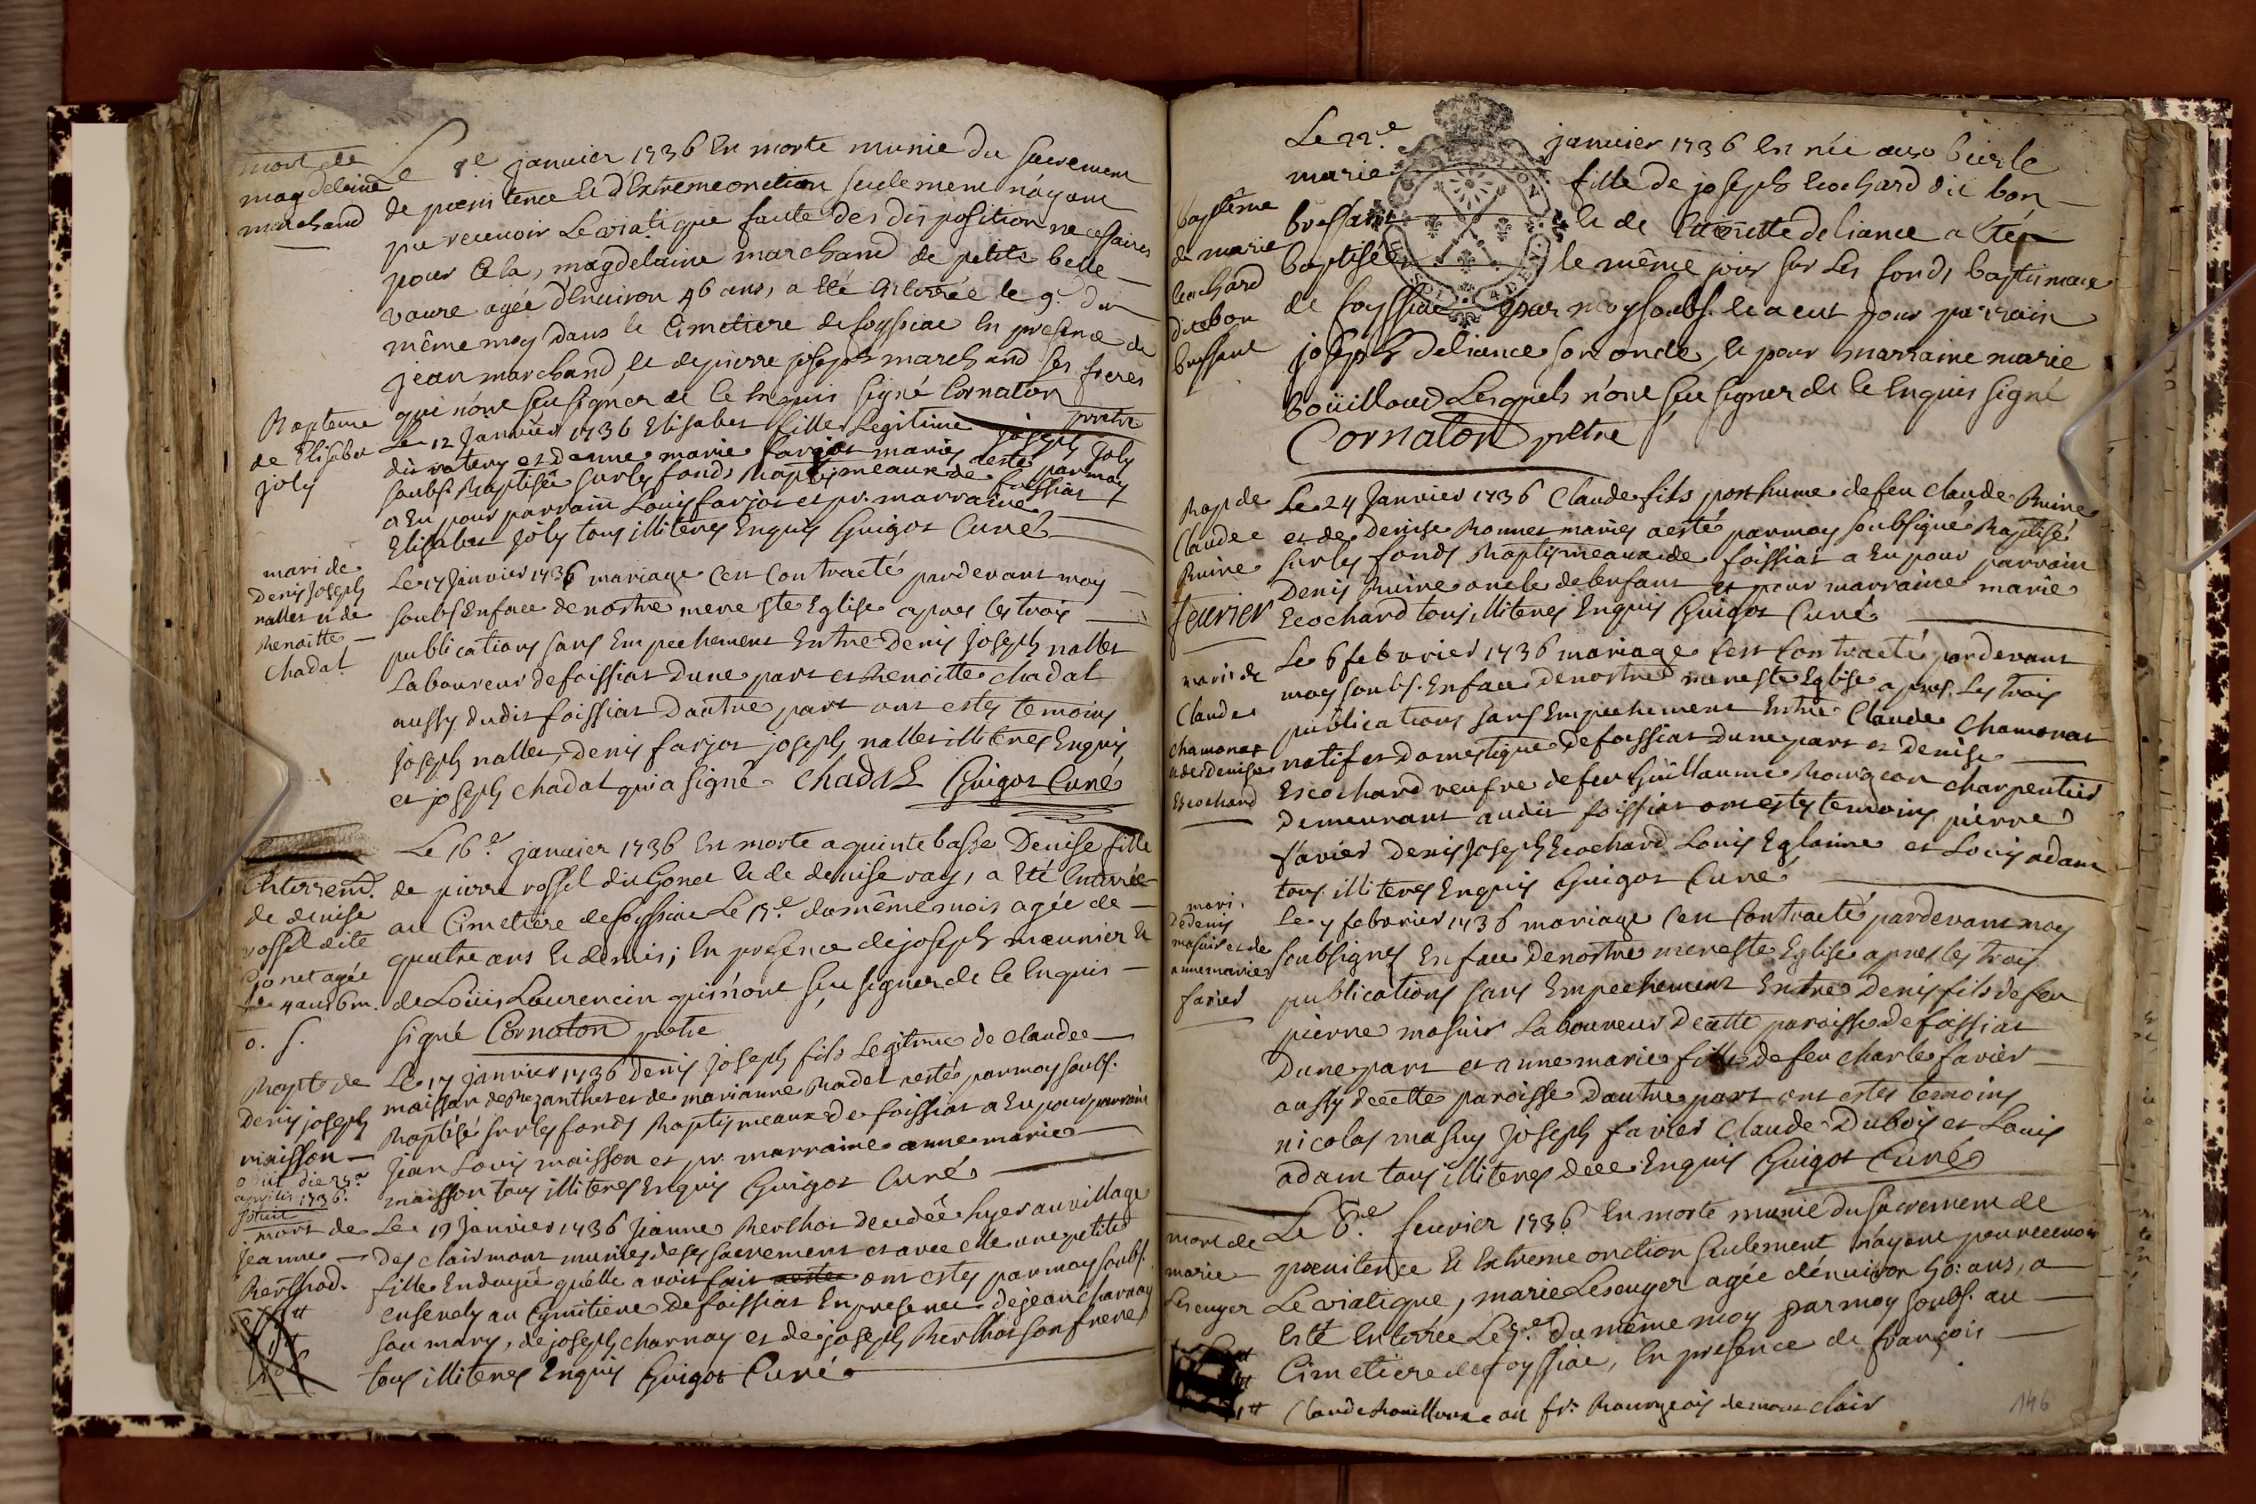 mort de
magdelaine
marchand
Le 8.e janvier 1736 En morte munie du sacrement
de pœnitence et d'Extremeonction seulement n'ayant
pu recevoir Le viatique faute des disposition necessaires
pour Cela, magdelaine marchand de petite belle
vavre agée d'Environ 46 ans, a Eté Enterrée le 9.e du
même moy dans le Cimetiere de foyssiac En presence de
jean marchand, et de pierre joseph marchand ses freres
qui n'ont sçu signer de Ce Enquis signé Cornaton
prêtre
Bapteme
de Elisabet
joly
Le 12 Janvier 1736 Elisabet fille Legitime joseph Joly
dit et danne marie farjot mariés aesté par moy
soubs. Baptisée sur les fonds Baptismeaux de foissiat
a Eu pour parrain Louis farjot et pr. marraine
Elisabet joly tous illiteres Enquis Guigot Curé
mari de
Denis Joseph
nallet et de
Benoitte
Chadal
Le 17 Janvier 1736 mariage Cest Contracté pardevant moy
soubs Enface denostre mere Ste Eglise apres les trois
publications sans Empechement Entre Denis Joseph nallet
Laboureur de foissiat Dune part et Benoitte chadal
aussy dudit foissiat Dautre part ont estés temoins
Joseph nallet, Denis farjot joseph nallet illiteres Enquis
et joseph chadal qui a signé chadaL Guigot Curé
Enterremt.
de denise
rossel dite
gonet agée
de 4 ans 6 m.
o. s.
Le 16.e janvier 1736 En morte a quintebasse Denise fille
de pierre rossel dit Gonet et de denise ray, a Eté Enterrée
au Cimetiere de foyssiac Le 17.e du même mois agée de
quatre ans et demis; En presence de joseph meunier et
de Loüis Laurencin qui n'ont sçu signer de Ce Enquis
signé Cornaton prêtre
Bapt de
Denis joseph
maisson
1736
Le 17 janvier 1736 Denis Joseph fils Legitime de Claude
maisson et de marianne Badel aesté par moy soubs.
Baptisé sur les fonds Baptismeaux de foissiat a Eu pour parrain
Jean Louis maisson et pr. marraine anne marie
maisson tous illiteres Enquis Guigot Curé
mort de
Jeanne
Berthod
Le 19 Janvier 1736 Jeanne Berthot decedée hyer au village
des clairmont munies de ses sacrement et avec elle une petite
fille Endoyée quelle avoit fait ont estés par moy soubs.
ensevely au Cymitiere de foissiat En presence de jean charnay
son mary, de joseph charnay et de joseph Berthot son frere
tous illiteres Enquis Guigot Curé
baptême
de marie
Ecochard
dite bon
bressant
Le 22.e janvier 1736 En née aux bierle
marie fille de joseph Ecochard dit bon
bressant et de deliance a Eté
baptisée le même jour sur Les fonds baptismaux
de foyssiac par moy soubs. et a eut pour parrain
joseph deliance son oncle, et pour marraine marie
boüilloud Lesquels n'ont sçu signer de Ce Enquis signé
Cornaton prêtre
Bap de
Claude
Buire
Le 24 Janvier 1736 Claude fils posthume defeu claude Buire
et de Denise Bonnet mariés aesté par moy soubsigné Baptisé
sur les fonds Baptismeaux de foissiat a Eu pour parrain
Denis Buire oncle de lenfant et pour marraine marie
Ecochard tous illiteres Enquis Guigot Curé
fevrier
mari de
Claude
Chamonat
et de denise
Escochard
Le 6 febvrier 1736 mariage Cest Contracté pardevant
moy soubs. Enface denostre mere Ste Eglise apres Les trois
publications sans Empechement Entre Claude Chamonat
natif et Domestique de foissiat Dune part et denise
Escochard veufve defeu Guillaume Bourgeon charpentier
Demeurant audit foissiat ont estés temoins pierre
favier Denis Joseph Ecochard Louis Eglainne et Louis adam
tous illiteres Enquis Guigot Curé
mari.
de denis
masuir et de
anne marie
favier
Le 7 febvrier 1736 mariage Cest Contracté pardevant moy
soubsignes Enface Denostre mere Ste Eglise apres les trois
publications sans Empechement Entre Denis fils de feu
pierre masuir Laboureur Decette paroisse de foissiat
Dune part et anne marie fille defeu charle favier
aussy decette paroisse Dautre part ont estés temoins
nicolas masuy Joseph favier Claude Dubois et Louis
adam tous illiteres dece Enquis Guigot Curé
mort de
marie
Lescuyer
Le 8.e fevrier 1736 En morte munie du sacrement de
pœnitence et Extreme onction seulement n'ayant peu recevoir
Le viatique, marie Lescuyer agée d'environ 50: ans, a
Eté Enterrée Le 9.e du même moy par moy soubs. au
Cimetiere de foyssiac, En presence de françois
146